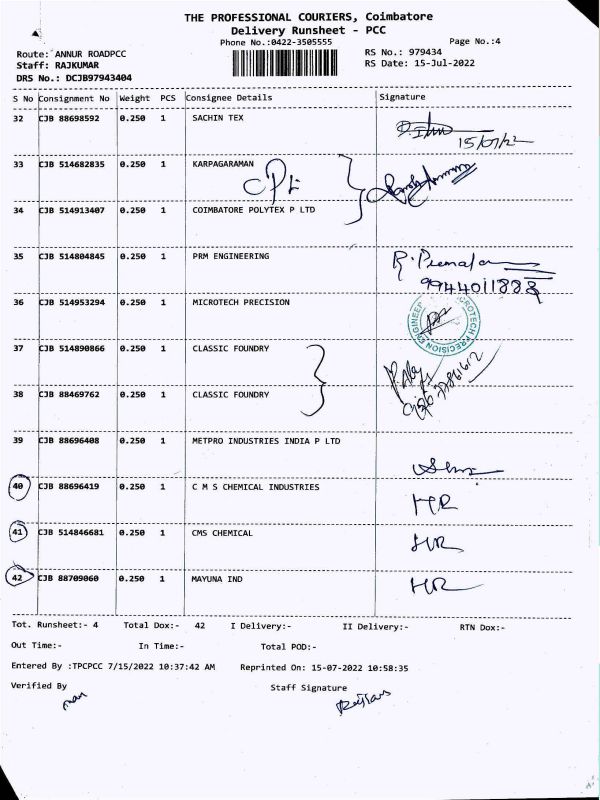 THE PROFESSIONAL COURIERS, Coimbatore
Delivery Runsheet - PCC
Phone No.:0422-3505555
Page No.:4
Route: ANNUR ROADPCC
RS No.: 979434
Staff: RAJKUMAR
RS Date: 15-Jul-2022
DRS No.: DCJB97943404
S No Consignment No Weight PCS Consignee Details Signature
32 CJB 88698592 0.250 1 SACHIN TEX
15/07/22
33 CJB 514682835 0.250 1 KARPAGARAMAN
CPL
34 CJB 514913407 0.250 1 COIMBATORE POLYTEX P LTD
35 CJB 514804845 0.250 1 PRM ENGINEERING
9944011888
36 CJB 514953294 0.250 1 MICROTECH PRECISION
MICROTECH PRECISION ENGINEER
37 CJB 514890866 0.250 1 CLASSIC FOUNDRY
38 CJB 88469762 0.250 1 CLASSIC FOUNDRY
39 CJB 88696408 0.250 1 METPRO INDUSTRIES INDIA P LTD
40 CJB 88696419 0.250 1 C M S CHEMICAL INDUSTRIES
HR
41 CJB 514846681 0.250 1 CMS CHEMICAL
HR
42 CJB 88709060 0.250 1 MAYUNA IND
HR
Tot. Runsheet:- 4 Total Dox:- 42 I Delivery:- II Delivery:- RTN Dox:-
Out Time:- In Time:- Total POD:-
Entered By :TPCPCC 7/15/2022 10:37:42 AM Reprinted On: 15-07-2022 10:58:35
Verified By Staff Signature